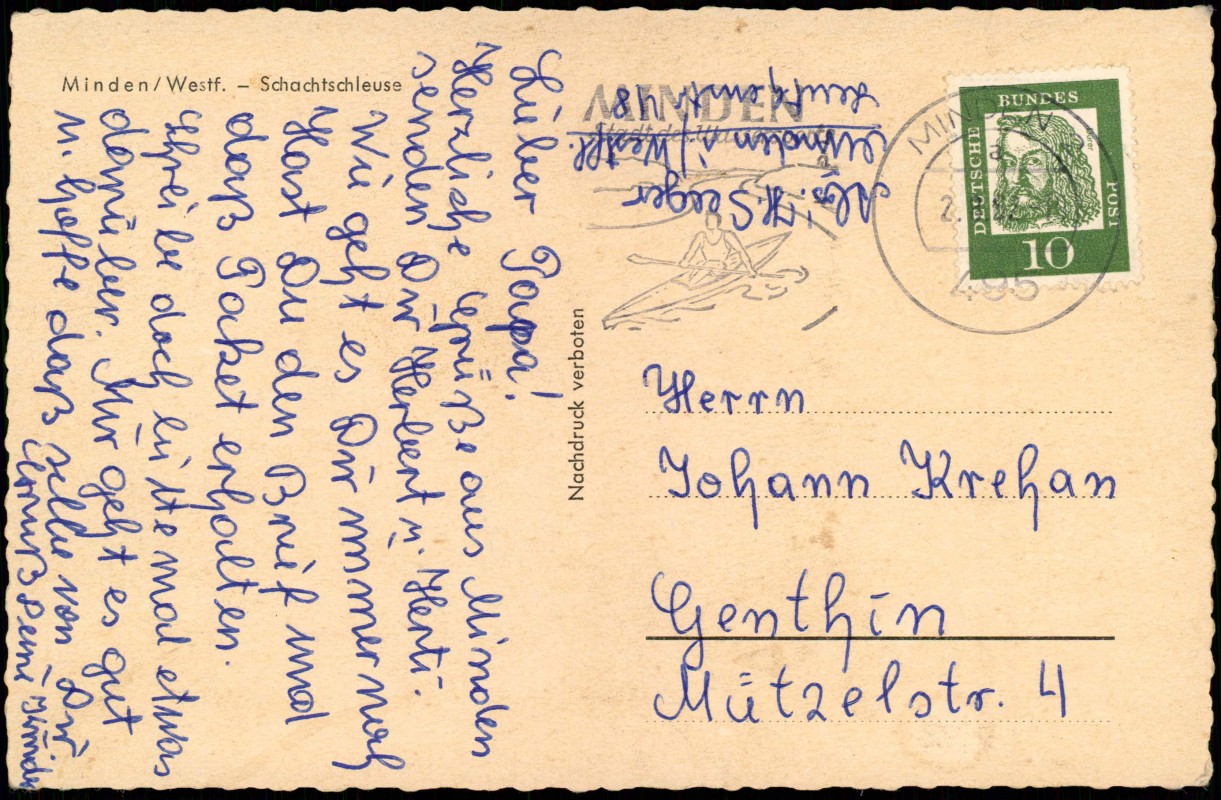 Minden/Westf. – Schachtschleuse
Lieber Papa!
Herzliche Grüße aus Minden
senden Dir Herbert u. Herti.
Wie geht es Dir immer noch
Hast Du den Brief und
daß Paket erhalten.
Schreibe doch bitte mal etwas
darüber. Mir geht es gut
u. hoffe daß selbe von Dir
Gruß Deine Kinder
Nachdruck verboten
Abs. H. Seeger
Minden i/Westf.
48
MINDEN
MINDEN
495
DEUTSCHE
BUNDES
POST
10
Herrn
Johann Krehan
Genthin
Mützelstr. 4